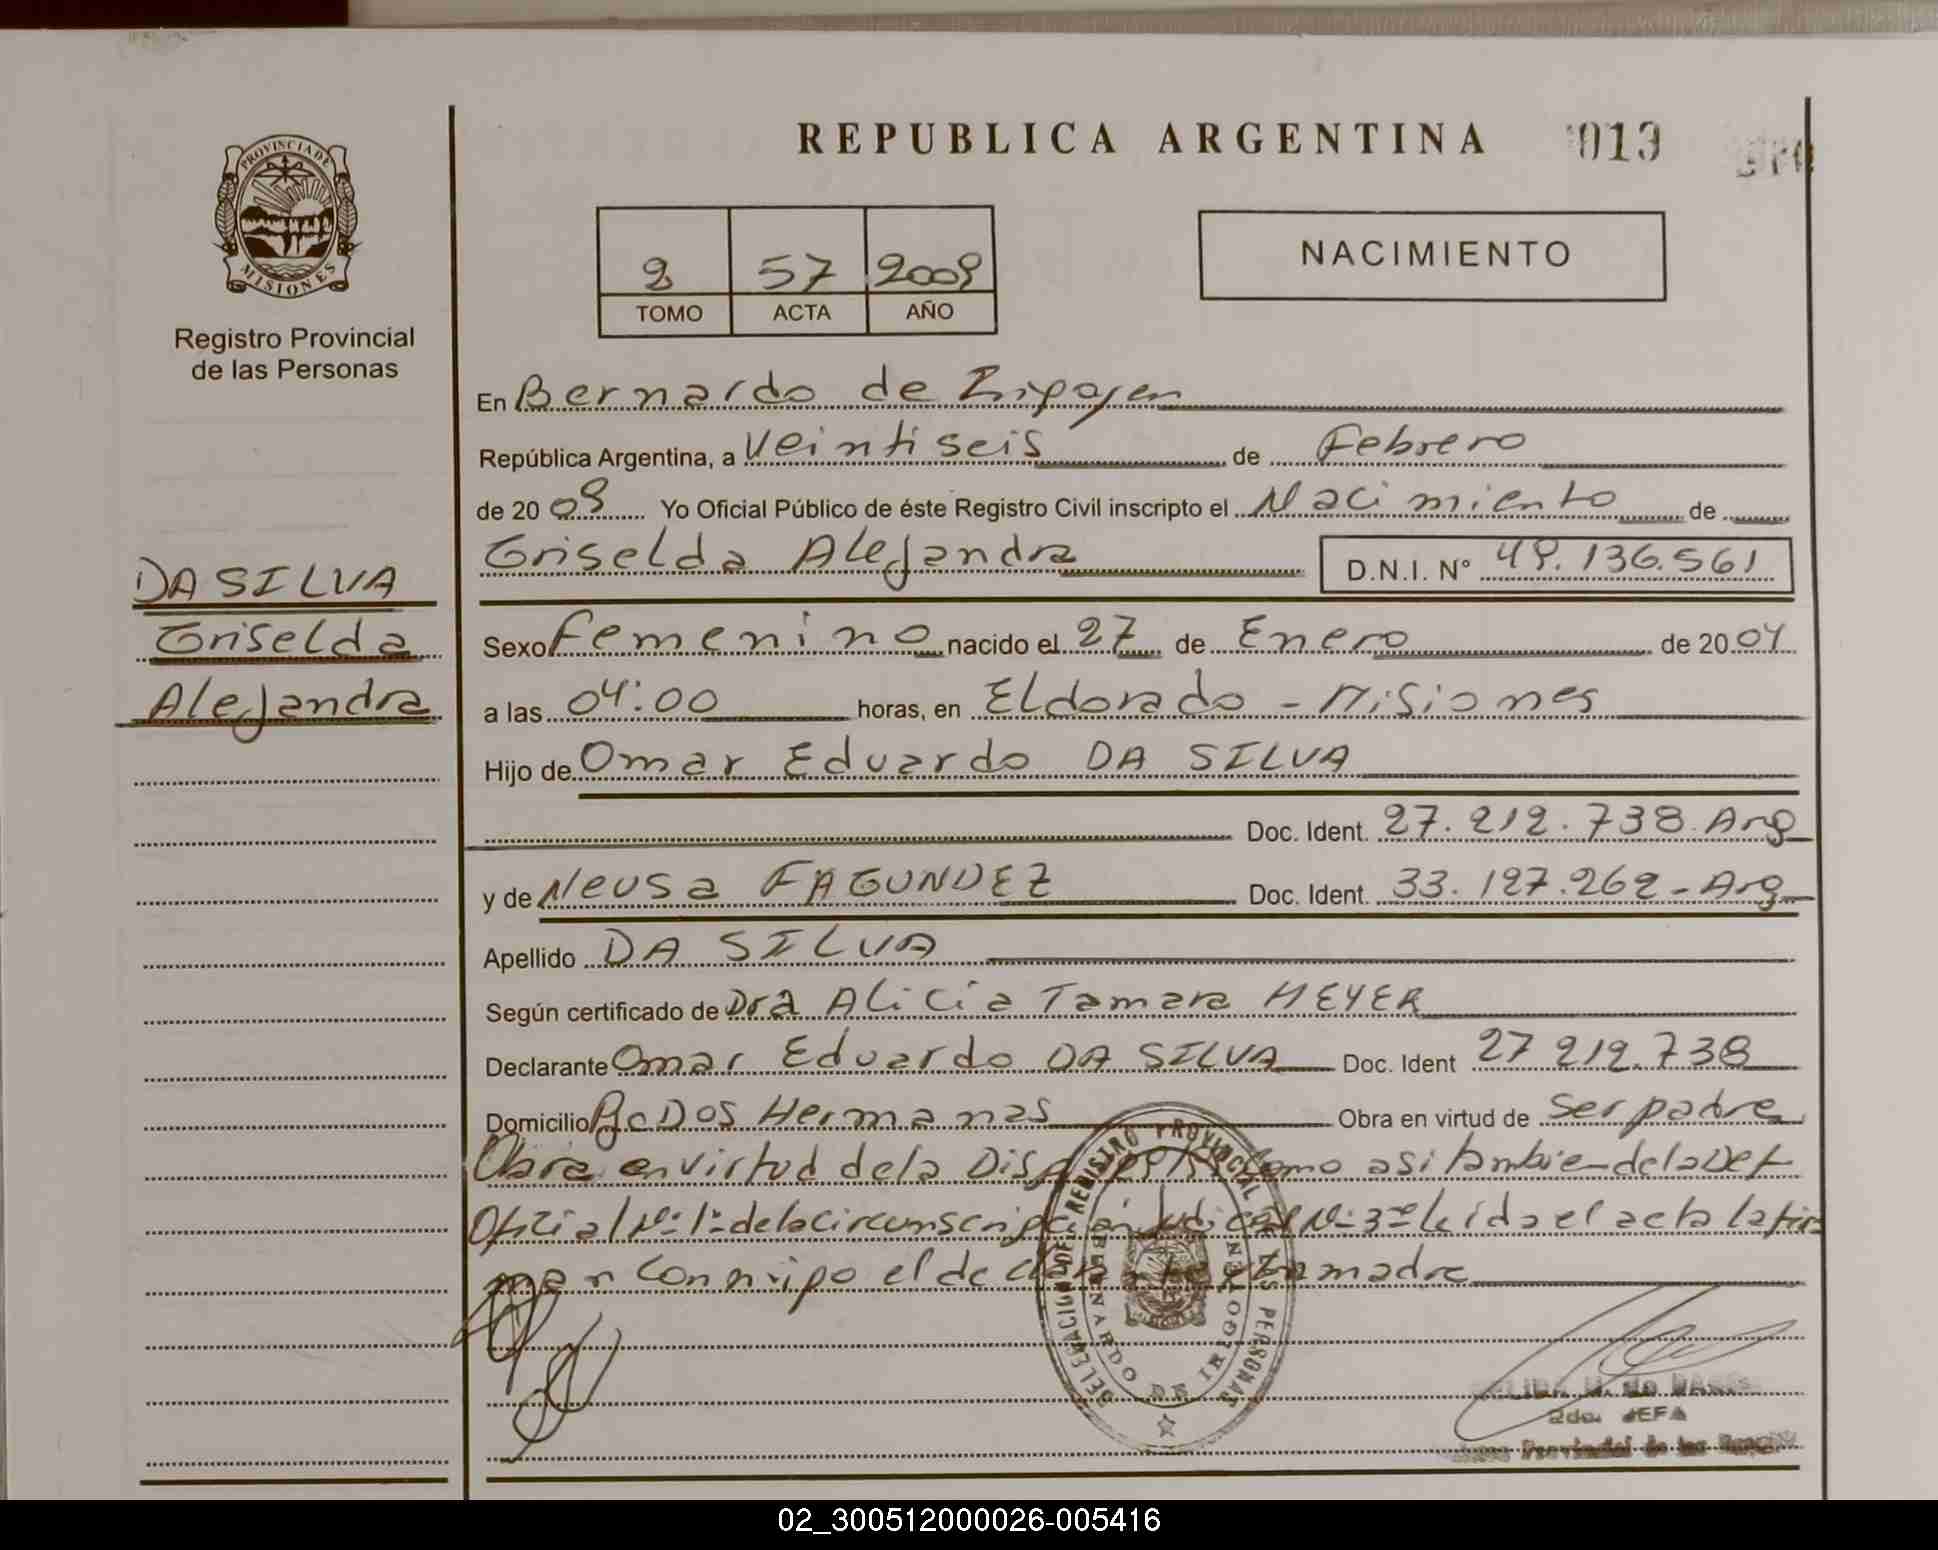 PROVINCIA DE
MISIONES
Registro Provincial
de las Personas
DA SILVA
Griselda
Alejandra
REPUBLICA ARGENTINA 013
2 57 2009
TOMO ACTA AÑO
NACIMIENTO
En Bernardo de Irigoyen
República Argentina, a Veintiseis de Febrero
de 2009 Yo Oficial Público de éste Registro Civil inscripto el Nacimiento de
Griselda Alejandra D.N.I. N° 49.136.561
Sexo Femenino nacido el 27 de Enero de 2004
a las 04:00 horas, en Eldorado - Misiones
Hijo de Omar Eduardo DA SILVA
Doc. Ident. 27.212.738 Arg
y de Neusa FAGUNDEZ Doc. Ident. 33.127.262 - Arg
Apellido DA SILVA
Según certificado de Dra Alicia Tamara MEYER
Declarante Omar Eduardo DA SILVA Doc. Ident 27 212.738
Domicilio Pje Dos Hermanas Obra en virtud de ser padre
Obra en virtud de la Disp como asi tambien de la Def
Oficial N° 1° de la circunscripcion judicial N° 3° leida el acta la fir
man conmigo el declarante madre
DELEGACION DEL REGISTRO PROVINCIAL DE LAS PERSONAS
BERNARDO DE IRIGOYEN
2da. JEFA
Provincial de las
02_300512000026-005416